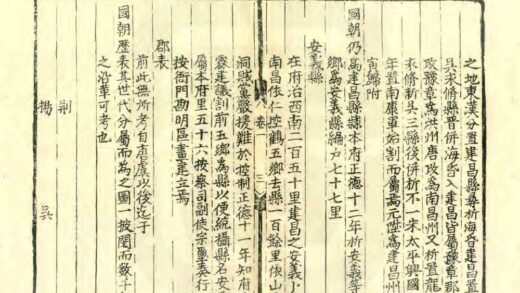 之地東漢分置建昌縣尋析海昏建昌置
脩縣晉併海昏入建昌皆屬豫章郡
改豫章為洪州唐改為南昌州又析置龍
衣脩新吳三縣後併析不一宋太平興國
年置南康軍始割而屬焉元陞為建昌州
寅歸附
國朝仍為建昌縣隸本府正德十二年析安義等
鄉為安義縣編戶七十七里
安義縣
在府治西南二百五十里建昌之安義卜
卷一
三
南昌依仁控鶴五鄉去縣一百餘里依山
洞縣寫聲援難於控制正德十一年知府
霖建議割前五鄉為縣以便統攝縣名安
屬本府里五十六按察司副使宗璽奏行
按衙門勘明區畫建立焉
郡表
前此無所考自唐虞以後迄于
國朝歷來其世代分屬而為之圖一披閱而數千
之沿革可考也
荊
揚 吳